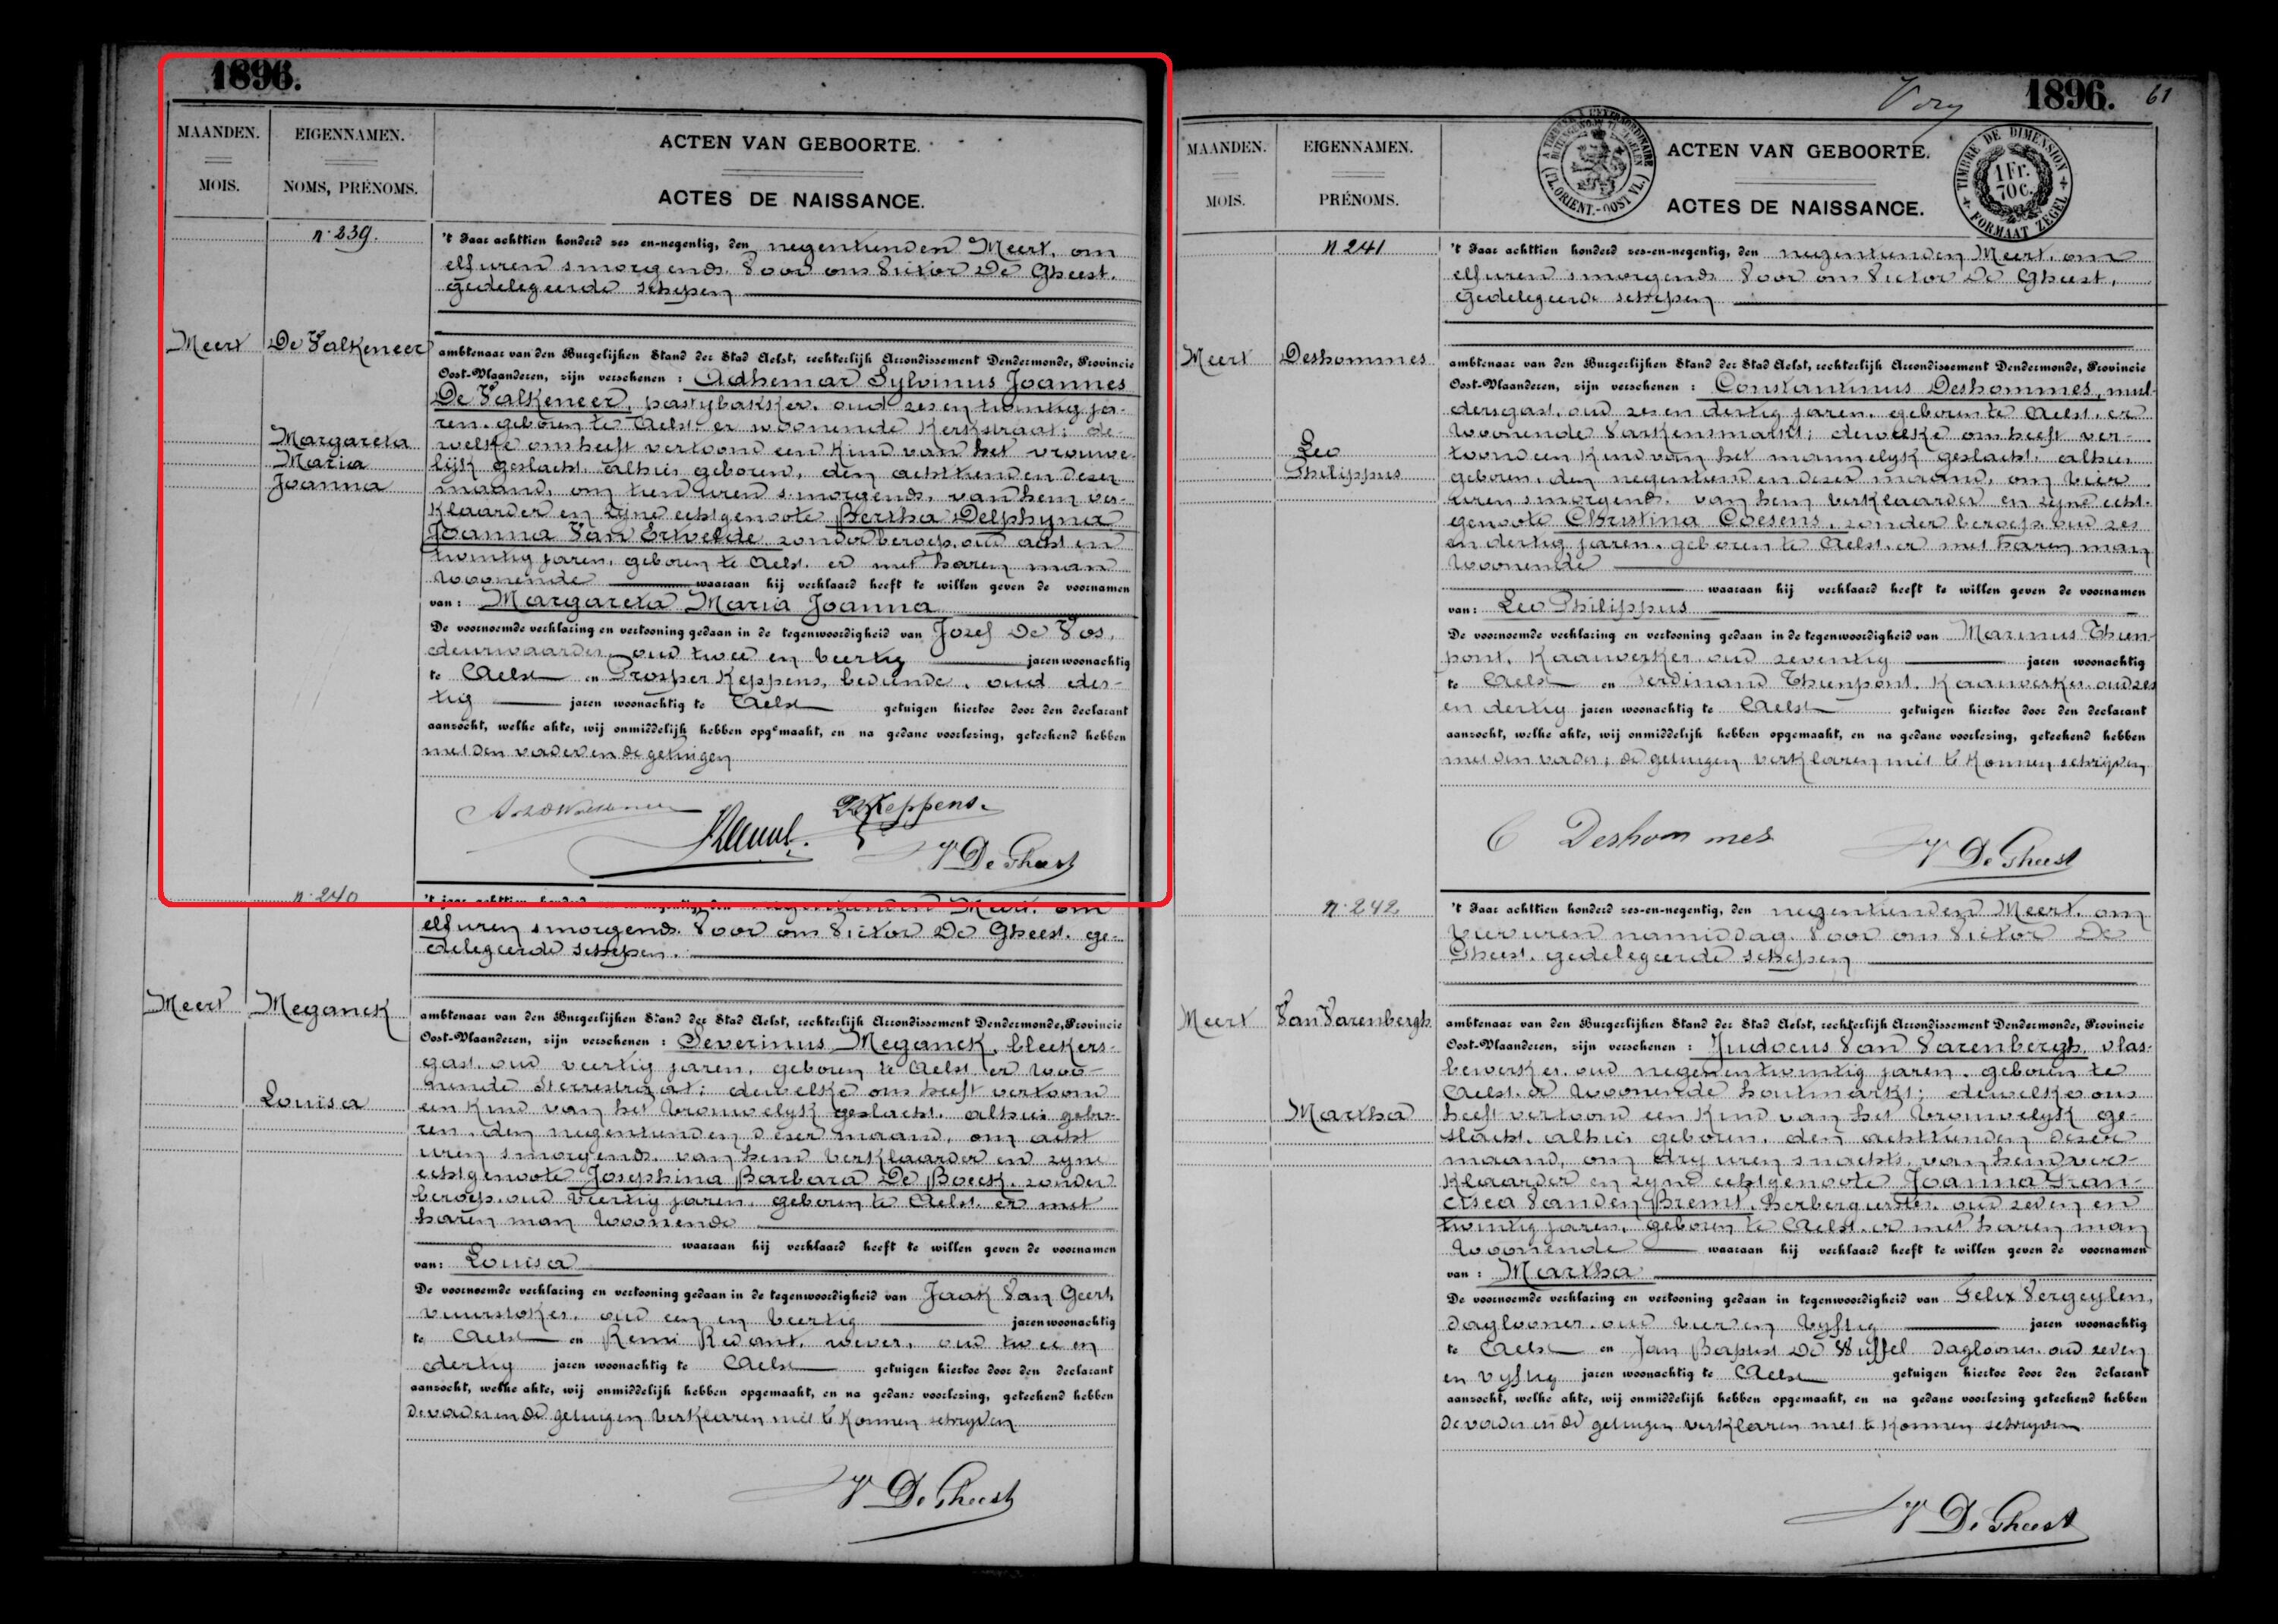 1896.
MAANDEN.
MOIS.
EIGENNAMEN.
NOMS, PRÉNOMS.
ACTEN VAN GEBOORTE.
ACTES DE NAISSANCE.
n. 239.
't Jaar achttien honderd zes en-negentig, den negentienden Meert, om
elf uren s'morgends. Voor ons Victor De Gheest.
gedelegeerde schepen
Meert
De Valkeneer
Margareta
Maria
Joanna
ambtenaar van den Burgelijken Stand der Stad Aelst, rechterlijk Arrondissement Dendermonde, Provincie
Oost-Vlaanderen, zijn verschenen : Adhemar Sylvinus Joannes
De Valkeneer, pastybakker, oud zes en twintig ja-
ren, geboren te Aelst er woonende Kerkstraat; de-
welke ons heeft vertoond een Kind van het vrouwe-
lijk geslacht, alhier geboren, den achttienden dezer
maand, om tien uren s'morgends, van hem ver-
klaarder en zyne echtgenoote Bertha Delphyna
Joanna Van Ertvelde zonder beroep, oud acht en
twintig jaren, geboren te Aelst. er met haren man
woonende waaraan hij verklaard heeft te willen geven de voornamen
van : Margareta Maria Joanna
De voornoemde verklaring en vertooning gedaan in de tegenwoordigheid van Jozef De Vos,
deurwaarder, oud twee en veertig jaren woonachtig
te Aelst en Prosper Keppens, bediende, oud der-
tig jaren woonachtig te Aelst getuigen hiertoe door den declarant
aanzocht, welke akte, wij onmiddelijk hebben opgemaakt, en na gedane voorlezing, geteekend hebben
met den vader en de getuigen
Keppens.
V De Gheest
n. 240
't jaar achttien honderd negentienden Meert. om
elf uren s'morgends. Voor ons Victor De Gheest. ge-
delegeerde schepen.
Meert
Meganck
Louisa
ambtenaar van den Burgerlijken Stand der Stad Aelst, rechterlijk Arrondissement Dendermonde, Provincie
Oost-Vlaanderen, zijn verschenen : Severinus Meganck, bleekers-
gast, oud veertig jaren, geboren te Aelst er woo-
nende Sterrestraat; dewelke ons heeft vertoond
een Kind van het vrouwelyk geslacht, alhier gebo-
ren, den negentienden dezer maand, om acht
uren s'morgends, van hem verklaarder en zyne
echtgenoote Josephina Barbara De Boeck, zonder
beroep, oud veertig jaren, geboren te Aelst, er met
haren man woonende
waaraan hij verklaard heeft te willen geven de voornamen
van : Louisa
De voornoemde verklaring en vertooning gedaan in de tegenwoordigheid van Jaak Van Geert,
vuurstoker, oud een en veertig jaren woonachtig
te Aelst en Remi Redant, wever, oud twee en
dertig jaren woonachtig te Aelst getuigen hiertoe door den declarant
aanzocht, welke akte, wij onmiddelijk hebben opgemaakt, en na gedane voorlezing, geteekend hebben
De vader en de getuigen verklaren niet te konnen schryven
V De Gheest
1896. 61
MAANDEN.
MOIS.
EIGENNAMEN.
PRÉNOMS.
ACTEN VAN GEBOORTE.
ACTES DE NAISSANCE.
(FL. ORIENT.-OOST VL.)
TIMBRE DE DIMENSION
1 Fr.
70 c.
FORMAAT ZEGEL
n 241
't Jaar achttien honderd zes-en-negentig, den negentienden Meert, om
elf uren s'morgends Voor ons Victor De Gheest,
gedelegeerde schepen
Meert
Deshommes
Leo
Philippus
ambtenaar van den Burgerlijken Stand der Stad Aelst, rechterlijk Arrondissement Dendermonde, Provincie
Oost-Vlaanderen, zijn verschenen : Constantinus Deshommes, mul-
dersgast, oud zes en dertig jaren, geboren te Aelst, er
woonende Varkensmarkt; dewelke ons heeft ver-
toond een Kind van het mannelyk geslacht, alhier
geboren, den negentienden dezer maand, om vier
uren s'morgends, van hem verklaarder en zyne echt-
genoote Christina Coesens, zonder beroep, oud zes
en dertig jaren, geboren te Aelst, er met haren man
woonende
waaraan hij verklaard heeft te willen geven de voornamen
van : Leo Philippus
De voornoemde verklaring en vertooning gedaan in de tegenwoordigheid van Marinus Thien-
pont, Kaaiwerker, oud zeventig jaren woonachtig
te Aelst en Ferdinand Thienpont, Kaaiwerker, oud zes
en dertig jaren woonachtig te Aelst getuigen hiertoe door den declarant
aanzocht, welke akte, wij onmiddelijk hebben opgemaakt, en na gedane voorlezing, geteekend hebben
met den vader; de getuigen verklaren niet te konnen schryven
C Deshommes
V De Gheest
n. 242
't Jaar achttien honderd zes-en-negentig, den negentienden Meert, om
vier uren namiddag. Voor ons Victor De
Gheest, gedelegeerde schepen
Meert
Van Varenbergh
Martha
ambtenaar van den Burgerlijken Stand der Stad Aelst, rechterlijk Arrondissement Dendermonde, Provincie
Oost-Vlaanderen, zijn verschenen : Judocus Van Varenbergh, vlas-
bewerker, oud negen en twintig jaren, geboren te
Aelst er woonende houtmarkt; dewelke ons
heeft vertoond een Kind van het vrouwelyk ge-
slacht, alhier geboren, den achttienden dezer
maand, om dry uren s'nachts, van hem ver-
klaarder en zyne echtgenoote Joanna Fran-
cisca Van den Bremt, herbergierster, oud zeven en
twintig jaren, geboren te Aelst, er met haren man
woonende waaraan hij verklaard heeft te willen geven de voornamen
van : Martha
De voornoemde verklaring en vertooning gedaan in tegenwoordigheid van Felix Vergeylen,
daglooner, oud vier en vyftig jaren woonachtig
te Aelst en Jan Baptist De Wuffel daglooner, oud zeven
en vyftig jaren woonachtig te Aelst getuigen hiertoe door den declarant
aanzocht, welke akte, wij onmiddelijk hebben opgemaakt, en na gedane voorlezing geteekend hebben
De vader en de getuigen verklaren niet te konnen schryven
V De Gheest